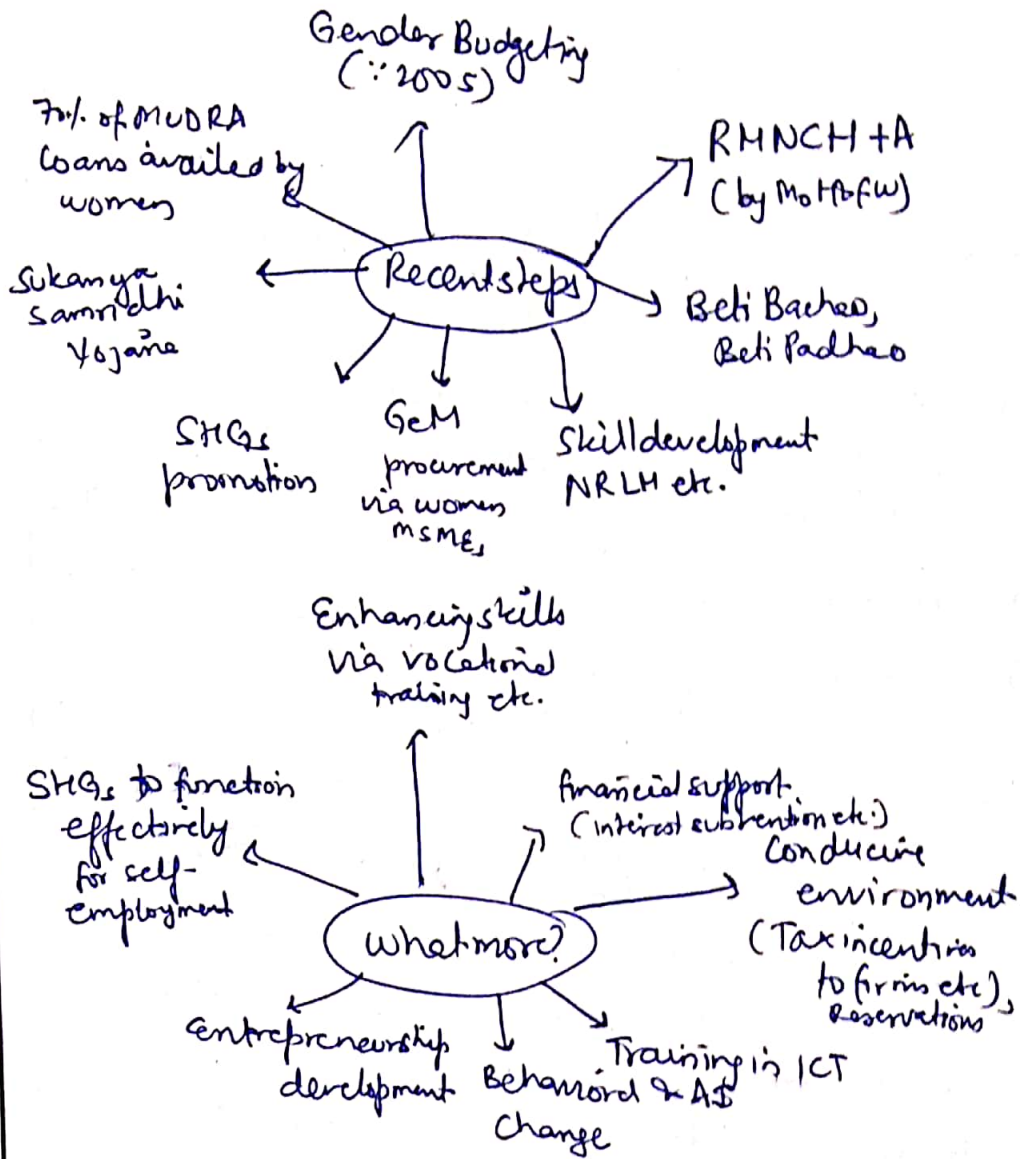 Gender Budgeting
(∵ 2005)
70% of MUDRA
loans availed by
women
RMNCH +A
(by MoH&FW)
Recent steps
Sukanya
Samridhi
Yojana
Beti Bachao,
Beti Padhao
SHGs
promotion
GeM
procurement
via women
MSMEs
Skill development
NRLM etc.
Enhancing skills
via vocational
training etc.
SHGs to function
effectively
for self-
employment
financial support
(interest subvention etc.)
Conducive
environment
(Tax incentives
to firms etc),
Reservations
What more?
Entrepreneurship
development
Behavioral &
Change
Training in ICT